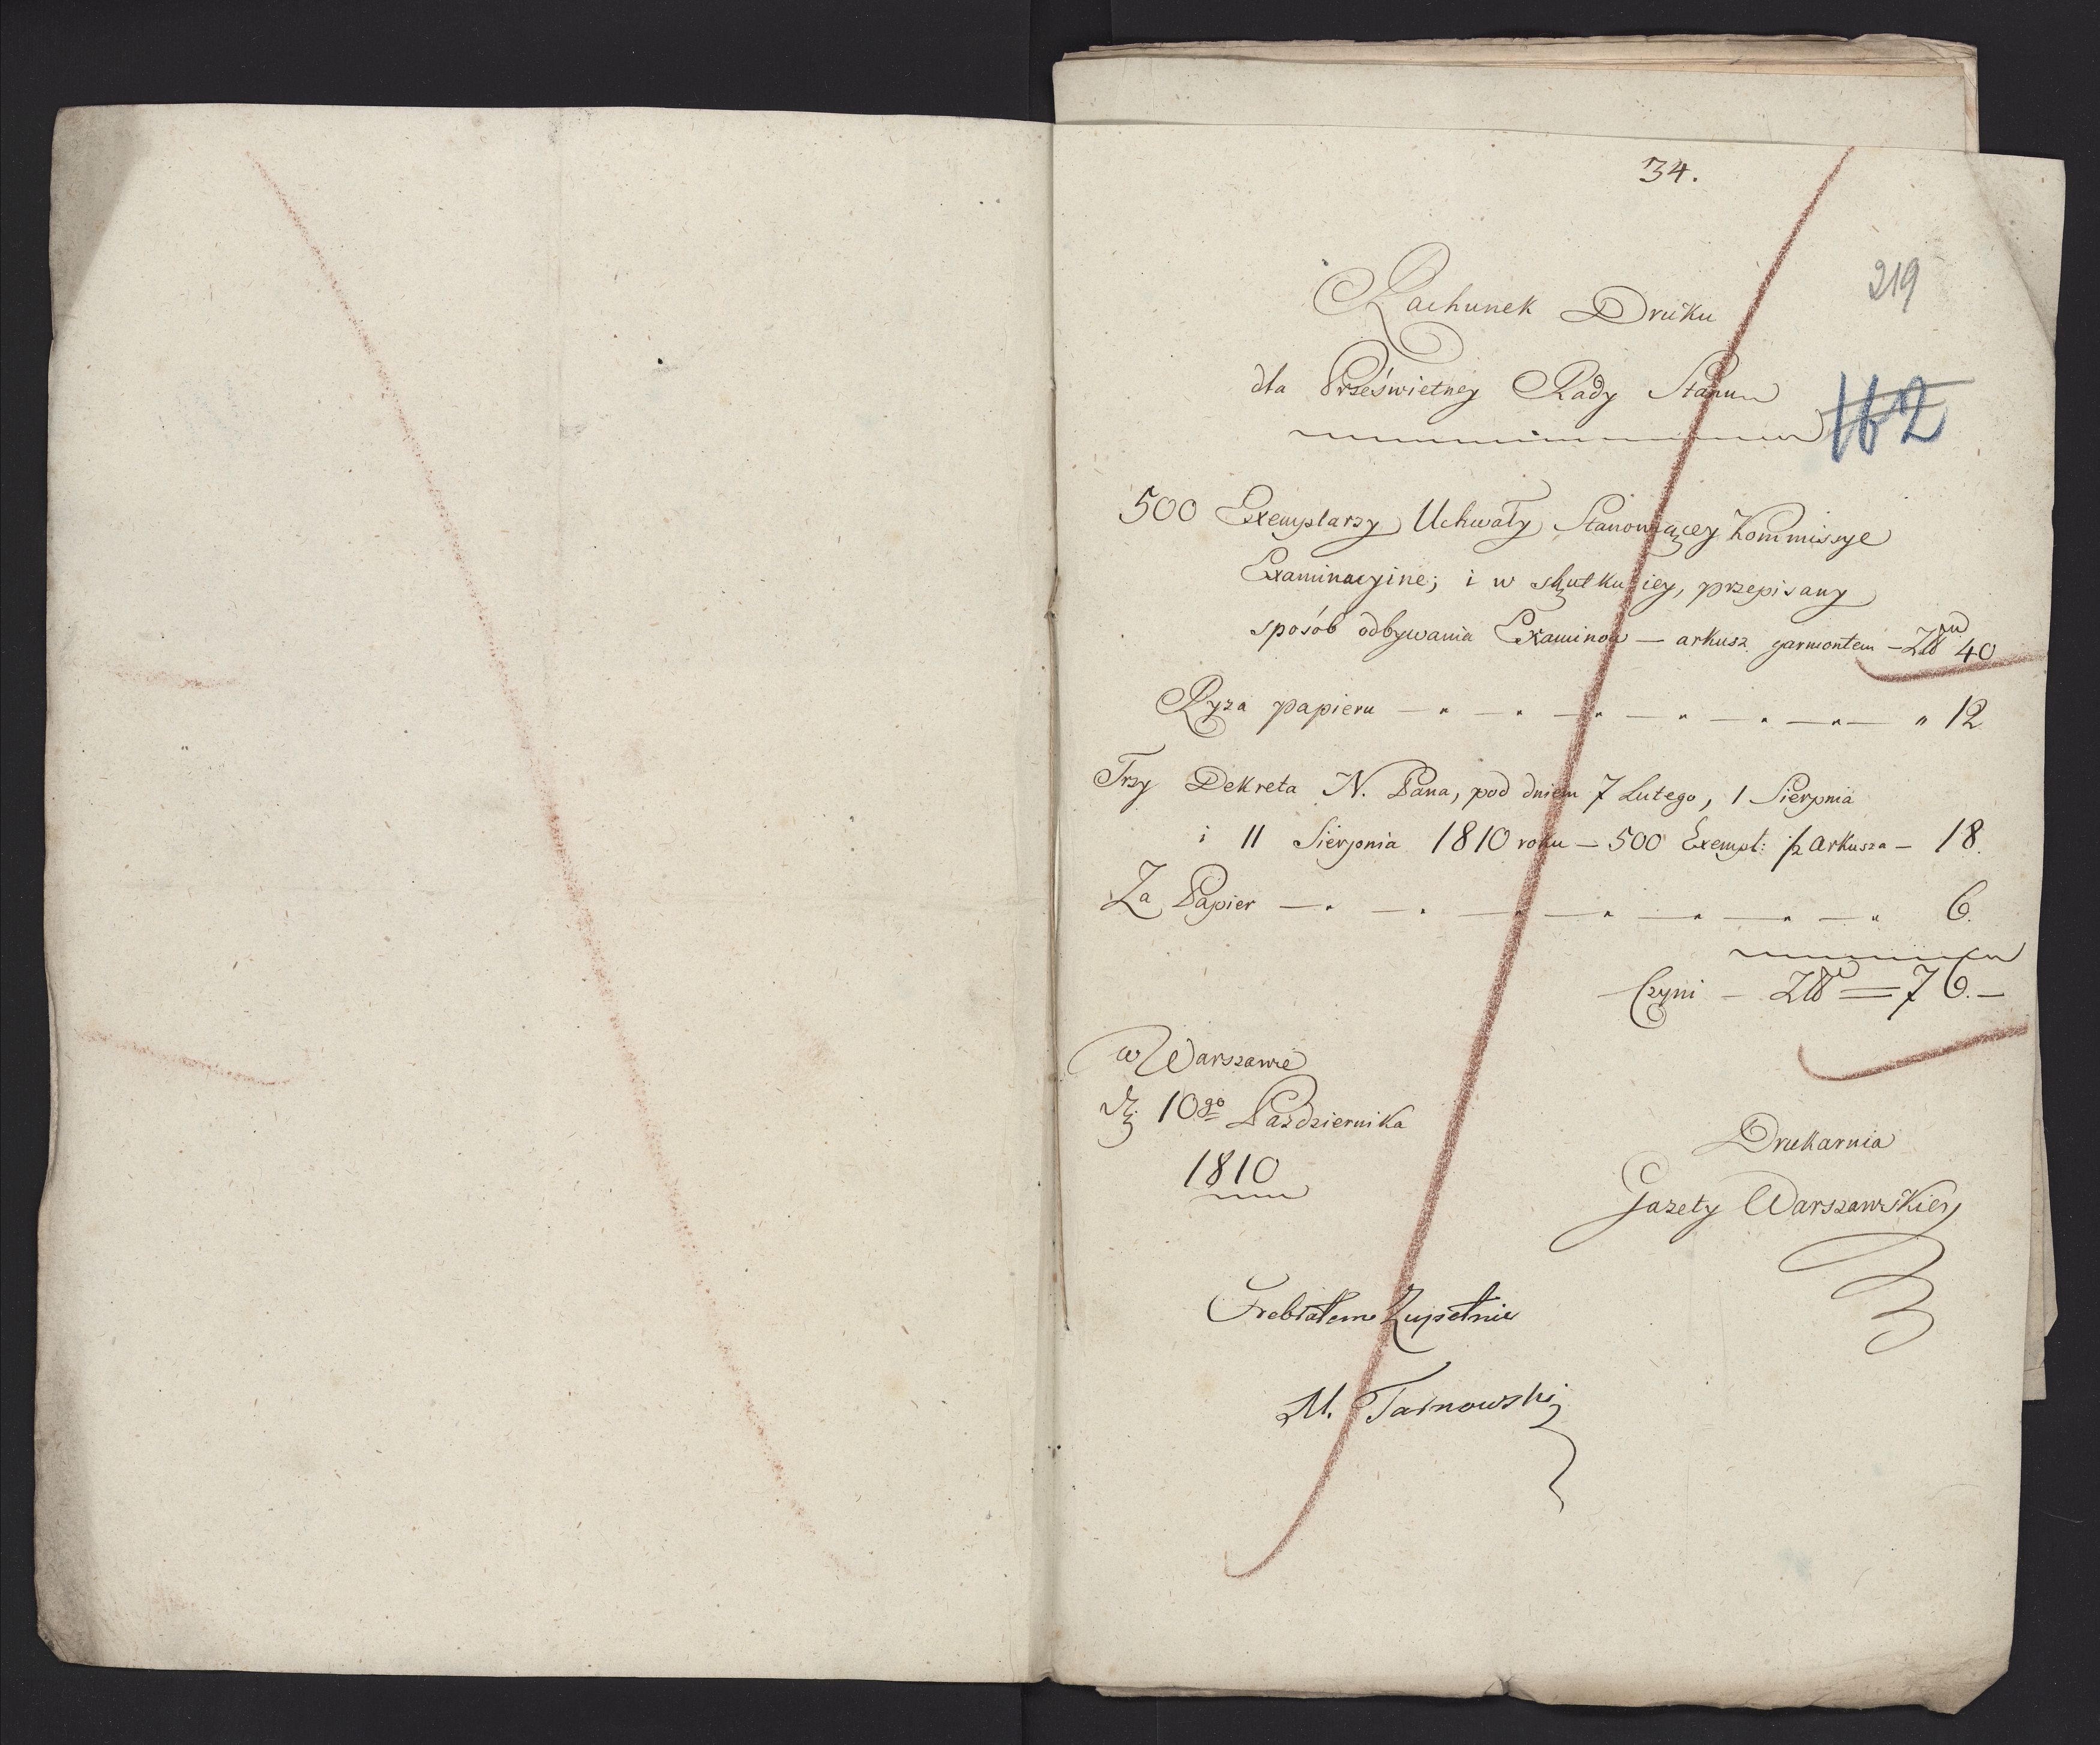 34.
219
Rachunek Druku
dla Prześwietney Rady Stanu
162
500 Exemplarzy Uchwały Stanowiącey Kommissye
Examinacyine; i w skutku iey, przepisany
sposób odbywania Examinow — arkusz garmontem — Zł 40
Ryza papieru — " — " — " — " — " — " — " 12
Trzy Dekreta N. Pana, pod dniem 7 Lutego, 1 Sierpnia
i 11 Sierpnia 1810 roku — 500 Exempl: ½ Arkusza — 18.
Za Papier — " — " — " — " — " — " — " 6.
Czyni — Zł = 76. —
w Warszawie
dn. 10go Pazdziernika
1810
Drukarnia
Gazety Warszawskiey
Zupełnie
M. Tarnowski